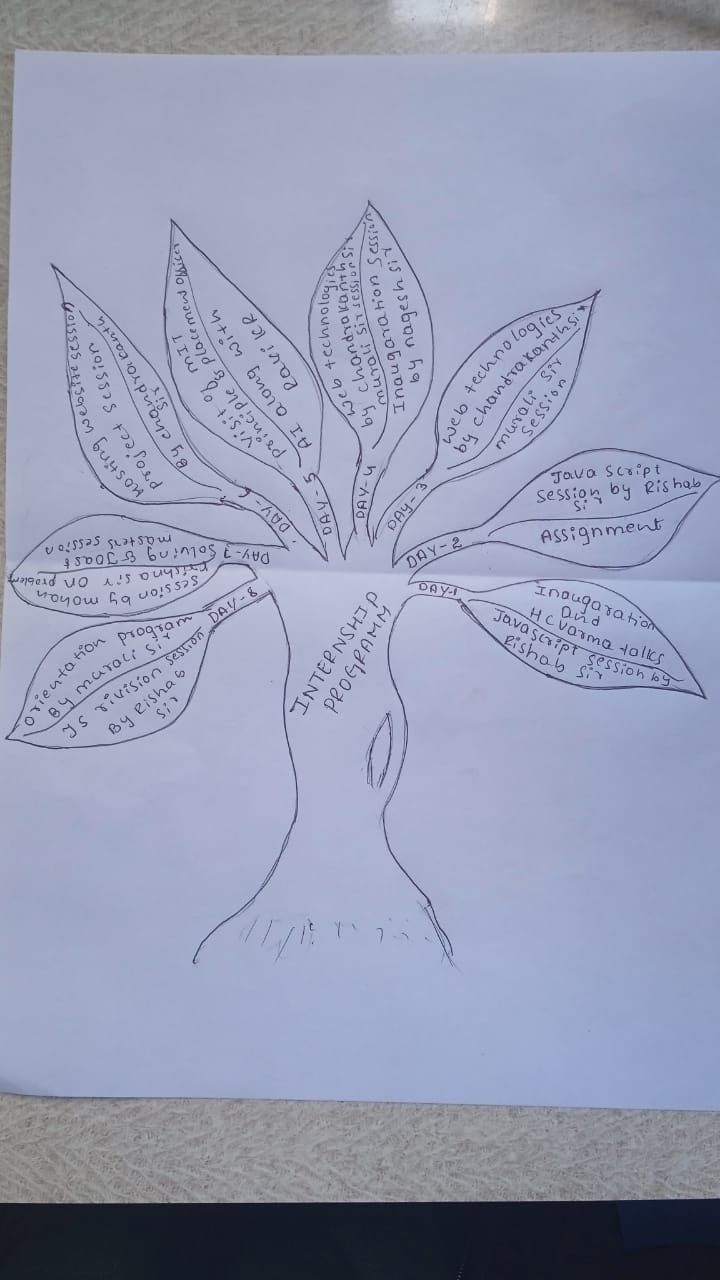 INTERNSHIP
PROGRAMM
DAY-1
Inaugaration
and
HC Varma talks
Javascript session by
Rishab sir
DAY-2
Java script
session by Rishab
sir
Assignment
DAY-3
web technologies
by chandrakanth sir
murali sir
session
DAY-4
web technologies
by chandrakanth sir
murali sir session
Inaugaration session
by nagesh sir
DAY-5
visit of MIT
principle & placement officer
AI along with
Ravi KR
DAY-6
Hosting website session
project session
By chandrakanth
sir
DAY-7
session by mohan
krishna sir on problem
solving & Toast
masters session
DAY-8
orientation program
By murali sir
JS rivision session
By Rishab
sir